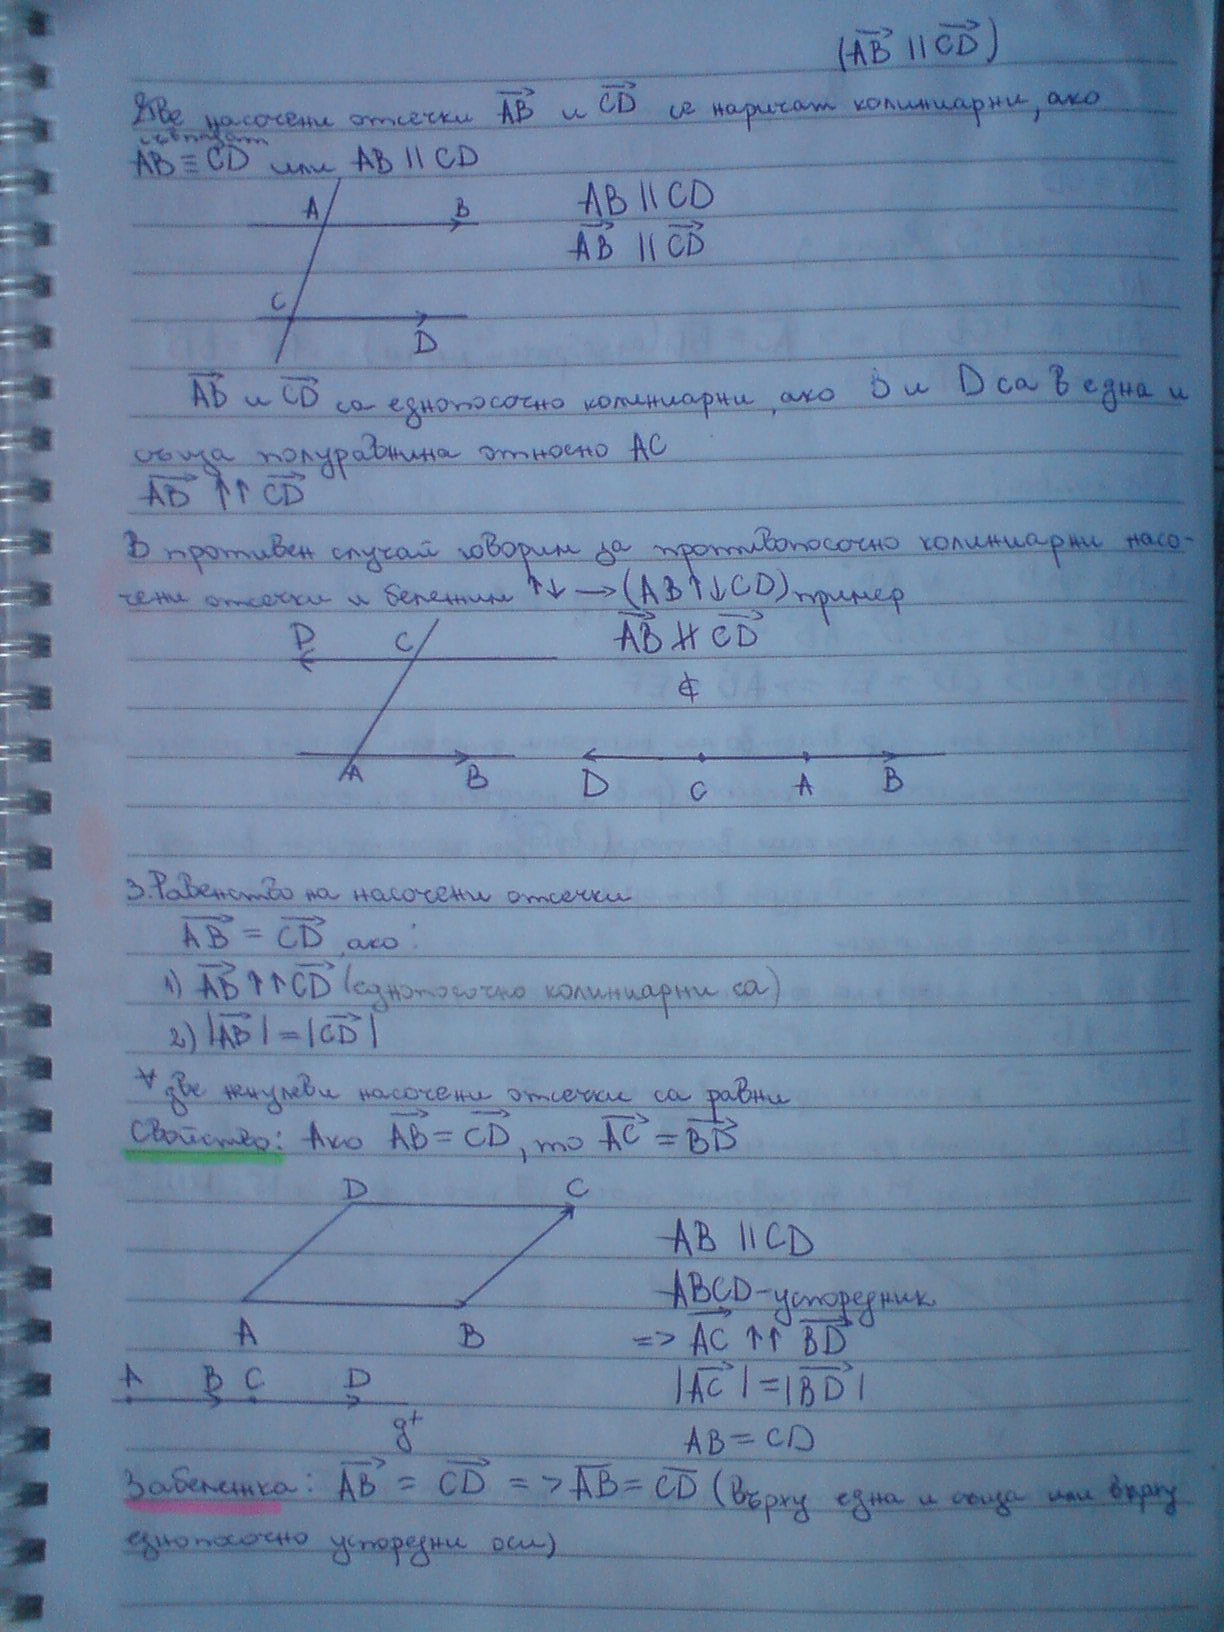 (AB→ || CD→)
Две насочени отсечки AB→ и CD→ се наричат колиниарни, ако
съвпадат
AB ≡ CD или AB || CD
A B
AB || CD
AB→ || CD→
C
D
AB→ и CD→ са еднопосочно колиниарни, ако B и D са в една и
съща полуравнина относно AC
AB→ ↑↑ CD→
В противен случай говорим за противопосочно колиниарни насо-
чени отсечки и бележим ↑↓ → (AB↑↓CD) пример
D C
AB→ ∦ CD→
A B
D C A B
3. Равенство на насочени отсечки
AB→ = CD→, ако:
1) AB→ ↑↑ CD→ (еднопосочно колиниарни са)
2) |AB→| = |CD→|
∀ две ненулеви насочени отсечки са равни
Свойство: Ако AB→ = CD→, то AC→ = BD→
D C
AB || CD
ABCD - успоредник
A B
=> AC→ ↑↑ BD→
A B C D
|AC→| = |BD→|
g+
AB = CD
Забележка: AB→ = CD→ => A̅B̅ = C̅D̅ (върху една и съща или върху
еднопосочно успоредни оси)